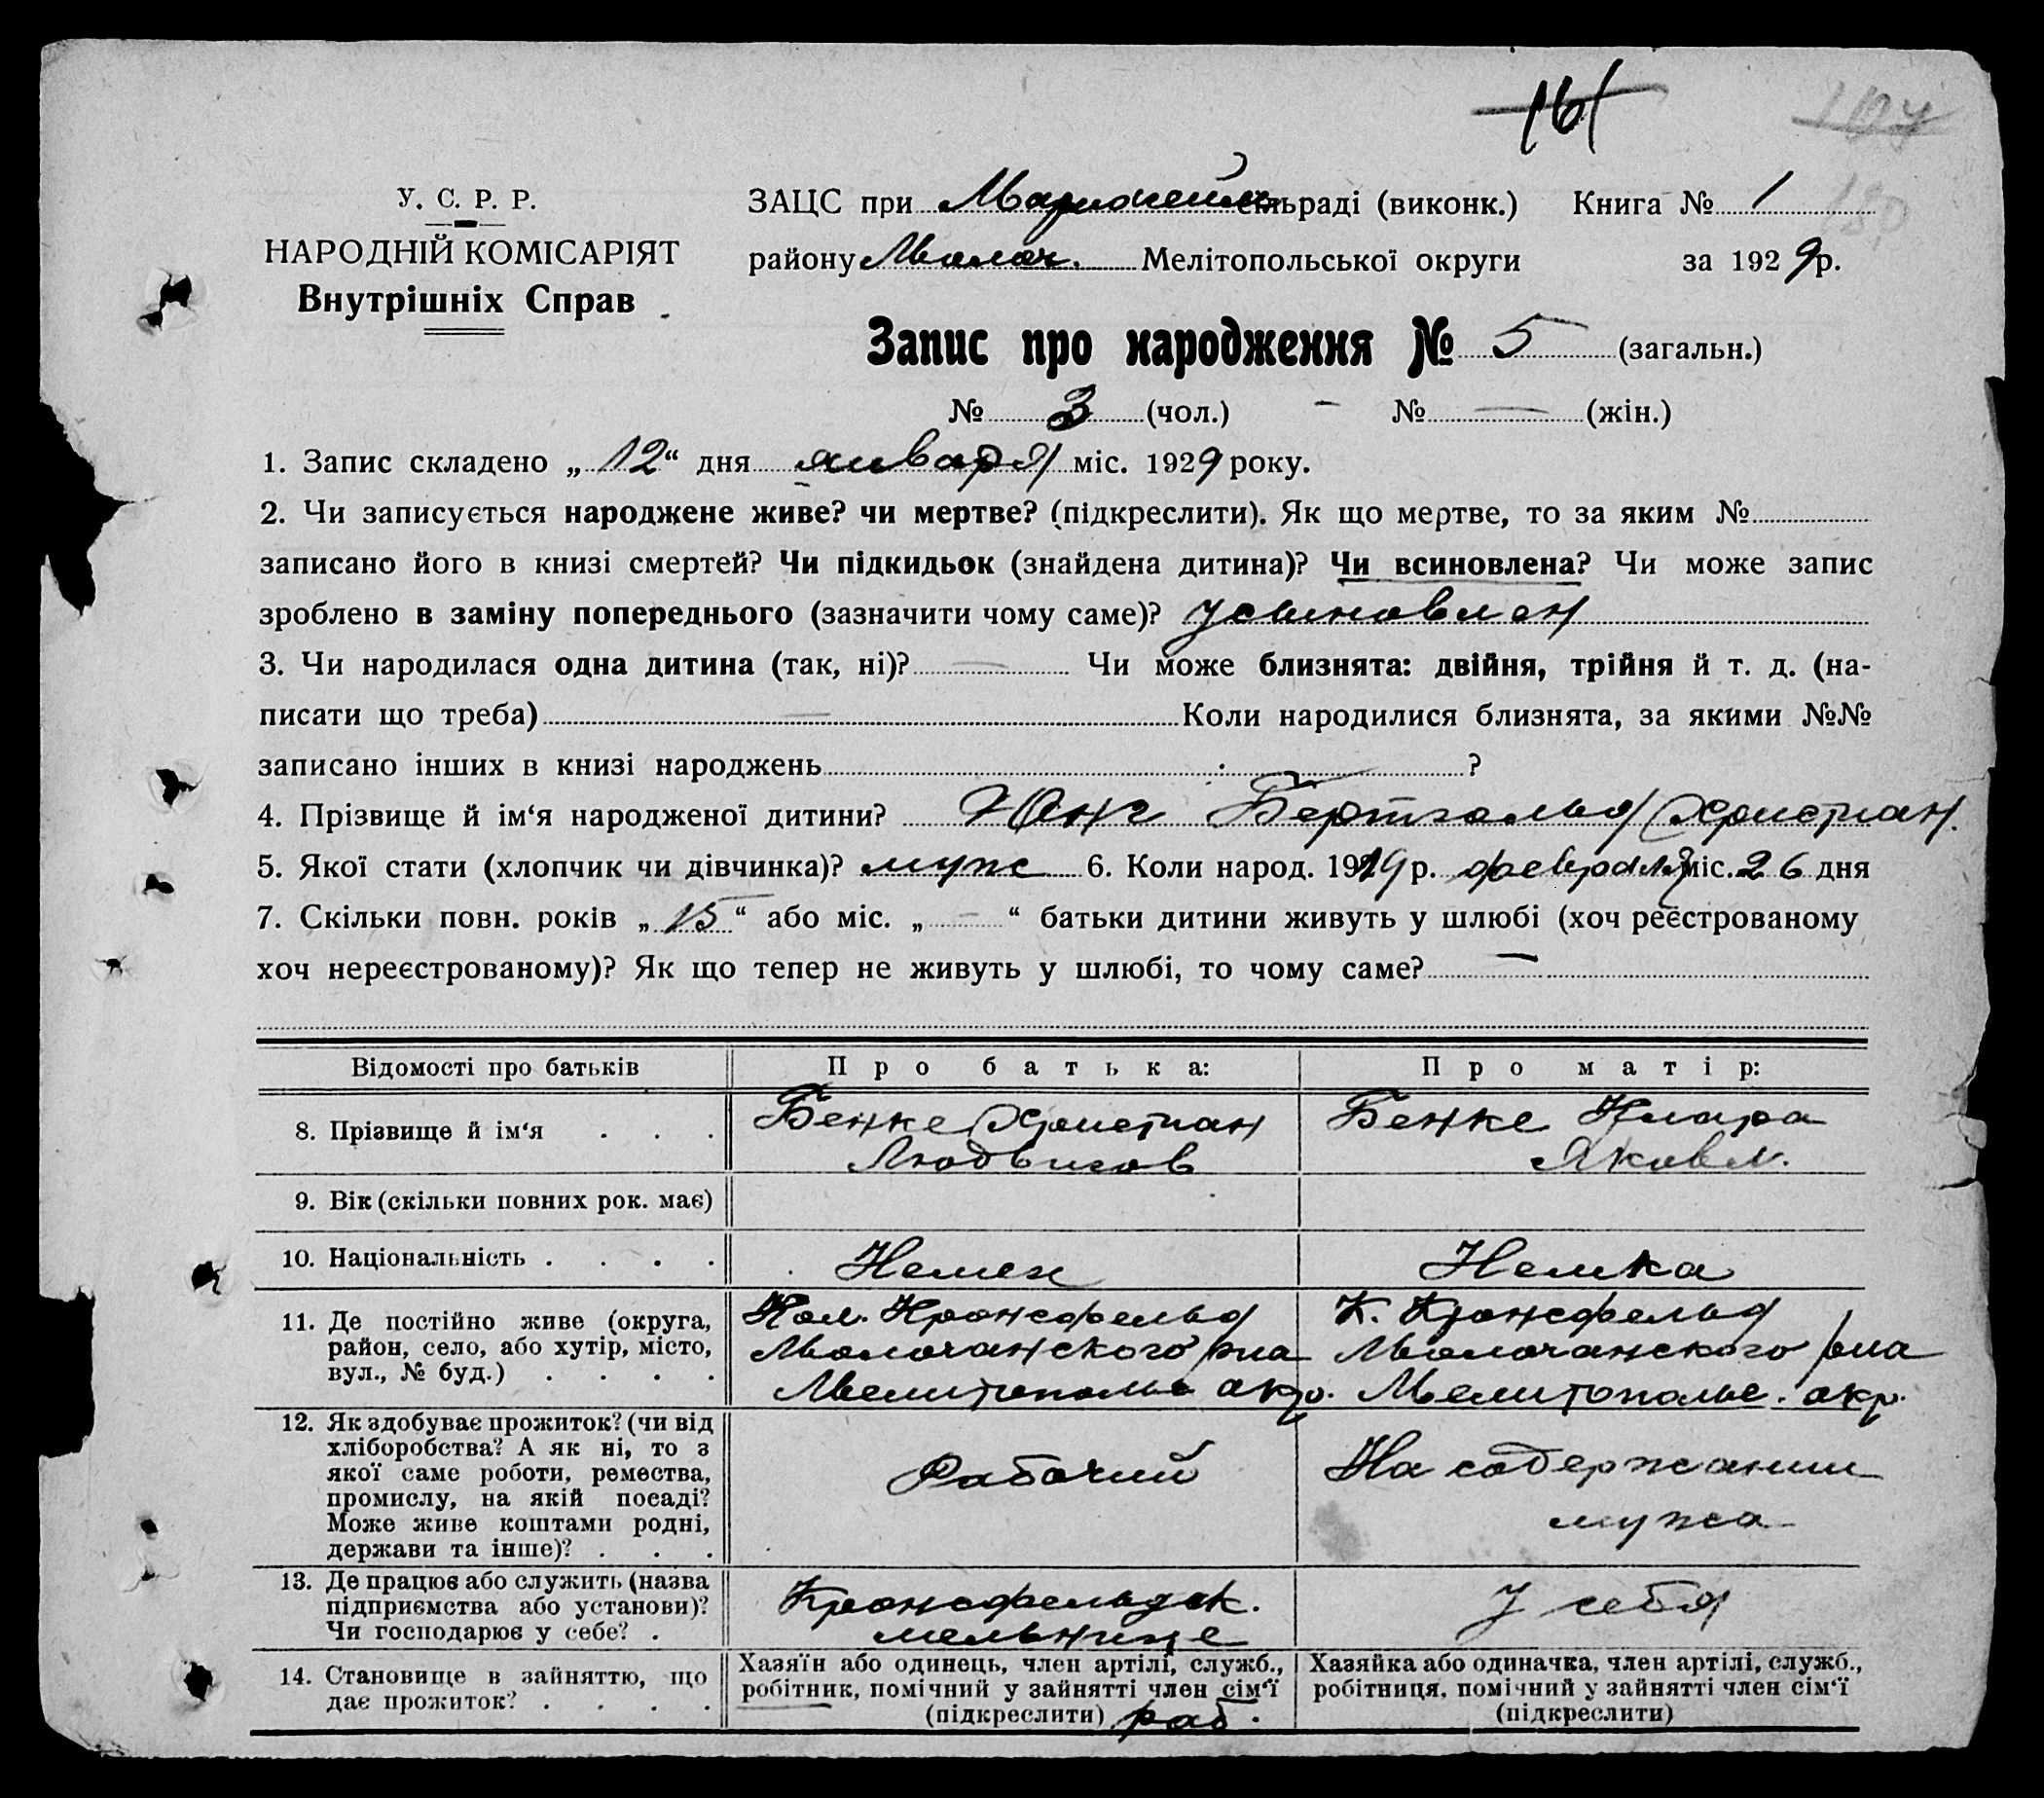 161
У. С. Р. Р.
НАРОДНІЙ КОМІСАРІЯТ
Внутрішніх Справ
ЗАЦС при сільраді (виконк.) Книга № 1
району Молоч. Мелітопольської округи за 1929 р.
Запис про народження № 5 (загальн.)
№ 3 (чол.) - № — (жін.)
1. Запис складено „12“ дня января міс. 1929 року.
2. Чи записується народжене живе? чи мертве? (підкреслити). Як що мертве, то за яким №
записано його в книзі смертей? Чи підкидьок (знайдена дитина)? Чи всиновлена? Чи може запис
зроблено в заміну попереднього (зазначити чому саме)? усыновлен
3. Чи народилася одна дитина (так, ні)? — Чи може близнята: двійня, трійня й т. д. (на-
писати що треба) — Коли народилися близнята, за якими №№
записано інших в книзі народжень ?
4. Прізвище й ім‘я народженої дитини? Юнг Бертгольд Христиан.
5. Якої стати (хлопчик чи дівчинка)? муж 6. Коли народ. 1919 р. февраля міс. 26 дня
7. Скільки повн. років „15“ або міс. „—“ батьки дитини живуть у шлюбі (хоч реєстрованому
хоч нереєстрованому)? Як що тепер не живуть у шлюбі, то чому саме? —
Відомості про батьків Про батька: Про матір:
8. Прізвище й ім‘я . . . Бенке Христиан Бенке Клара
Людвигов Яковл.
9. Вік (скільки повних рок. має)
10. Національність . . . . Немец Немка
11. Де постійно живе (округа, Кол. Кронсфельд К. Кронсфельд
район, село, або хутір, місто, Молочанского р-на Молочанского р-на
вул., № буд.) . . . . Мелитопольс окр. Мелитопольс. окр.
12. Як здобуває прожиток? (чи від
хліборобства? А як ні, то з
якої саме роботи, ремества, Рабочий На содержании
промислу, на якій посаді? мужа
Може живе коштами родні,
держави та інше)? . . .
13. Де працює або служить (назва Кронсфельдск. У себя
підприємства або установи)? мельнице
Чи господарює у себе? .
14. Становище в зайняттю, що Хазяїн або одинець, член артілі, служб., Хазяйка або одиначка, член артілі, служб.,
дає прожиток? . . . . робітник, помічний у зайнятті член сім‘ї робітниця, помічний у зайнятті член сім‘ї
(підкреслити) раб. (підкреслити)